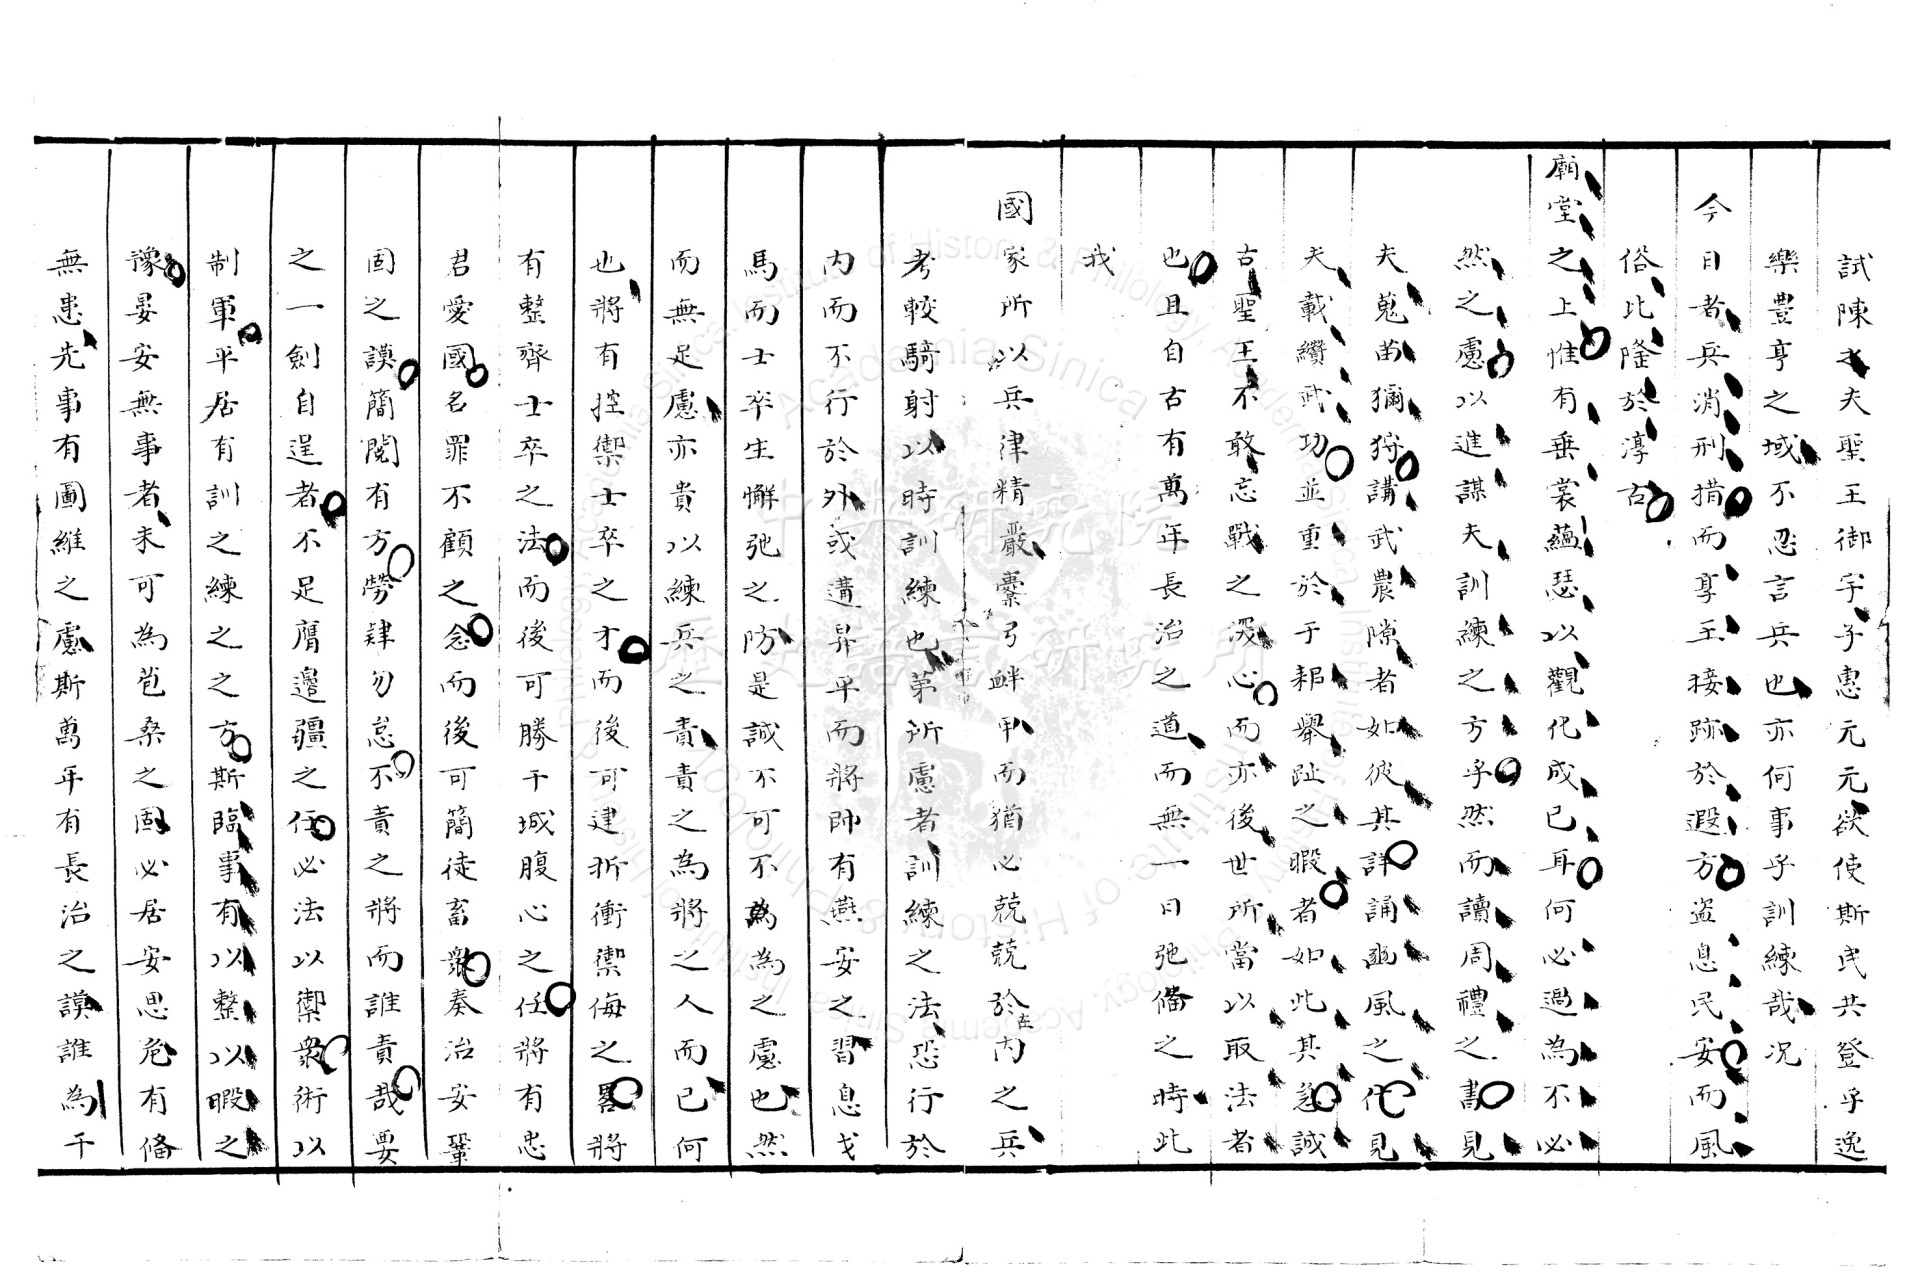 試陳之夫聖王御宇子惠元元欲使斯民共登乎逸
樂豐亨之域不忍言兵也亦何事乎訓練哉况
今日者兵消刑措而享王接跡於遐方盜息民安而風
俗比隆於淳古
廟堂之上惟有垂裳蘊瑟以觀化成已耳何必過為不必
然之慮以進謀夫訓練之方乎然而讀周禮之書見
夫蒐苗獮狩講武農隙者如彼其詳誦豳風之什見
夫載纘武功並重於于耜舉趾之暇者如此其急誠
古聖王不敢忘戰之深心而亦後世所當以取法者
也且自古有萬年長治之道而無一日弛備之時此
我
國家所以兵律精嚴櫜弓衅甲而猶必兢兢於在內之兵
考較騎射以時訓練也第所慮者訓練之法恐行於
內而不行於外或遘昇平而將帥有燕安之習息戈
馬而士卒生懈弛之防是誠不可不為為之慮也然
而無足慮亦貴以練兵之責責之為將之人而已何
也將有控禦士卒之才而後可建折衝禦侮之畧將
有整齊士卒之法而後可勝干城腹心之任將有忠
君愛國名罪不顧之念而後可簡徒畜眾奏治安鞏
固之謨簡閱有方勞肄勿怠不責之將而誰責哉要
之一劍自逞者不足膺邊疆之任必法以禦衆術以
制軍平居有訓之練之之方斯臨事有以整以暇之
豫晏安無事者未可為苞桑之固必居安思危有備
無患先事有圖維之慮斯萬年有長治之謨誰為干
中央研究院
歷史語言研究所
Academia Sinica
Institute of History & Philology, Academia Sinica